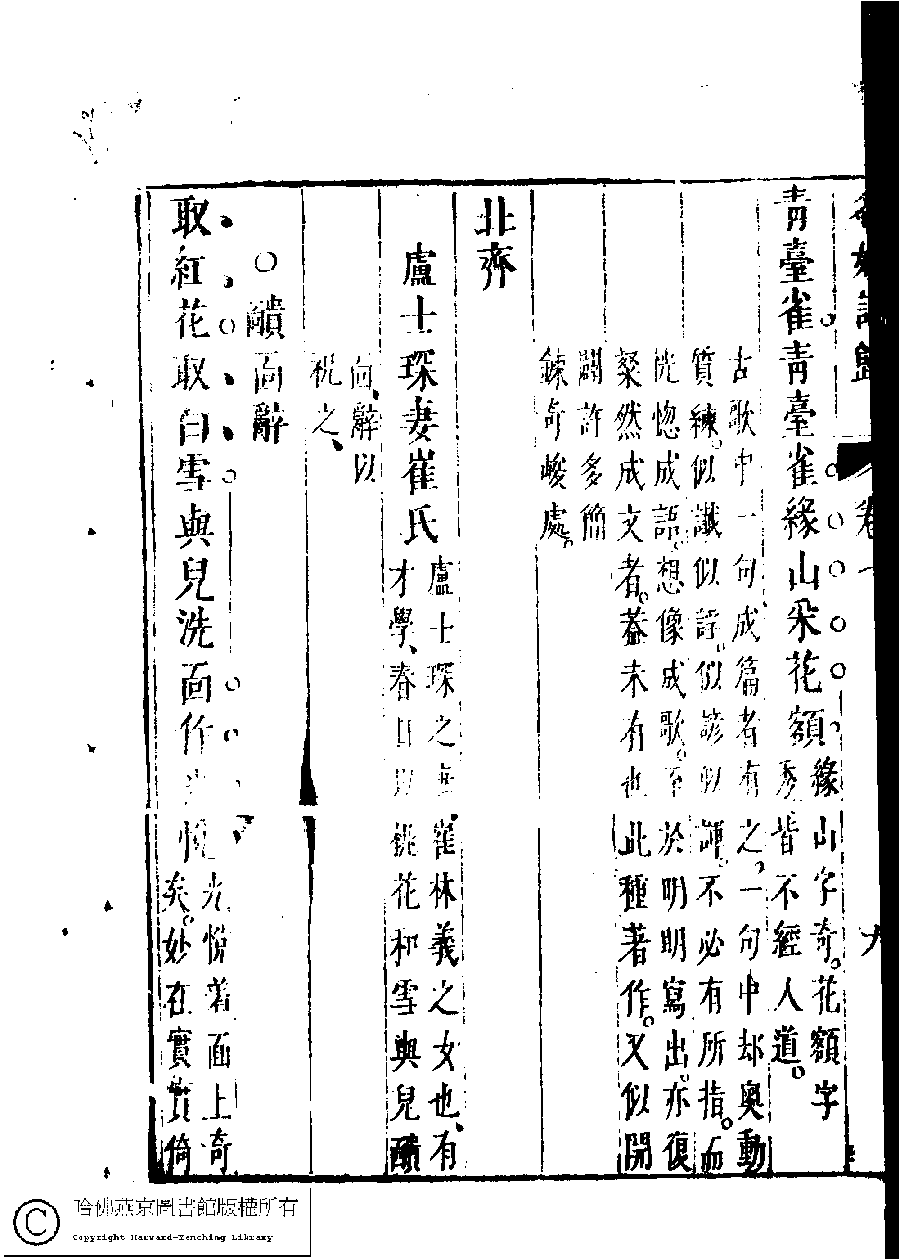 名媛詩歸 卷 九
青臺雀青臺雀緣山采花額
緣山字奇。花額字
秀皆不經人道。
古歌中一句、成篇者有之。一句中却奧動
質練。似讖似謠。似諺似諢。不必有所指。而
恍惚成語。想像成歌。至於明明寫出。亦復
粲然成文者。蓋未有也此種著作。又似開
闢許多簡
鍊奇峻處。
北齊
盧士琛妻崔氏
盧士琛之妻、崔林義之女也、有
才學、春日以桃花和雪與兒靧
面、辭似
祝之、
○靧面辭
取紅花取白雪與兒洗面作光悅
光悅着面上奇
矣。妙在實實倚
哈佛燕京圖書館版權所有
Copyright Harvard-Yenching Library